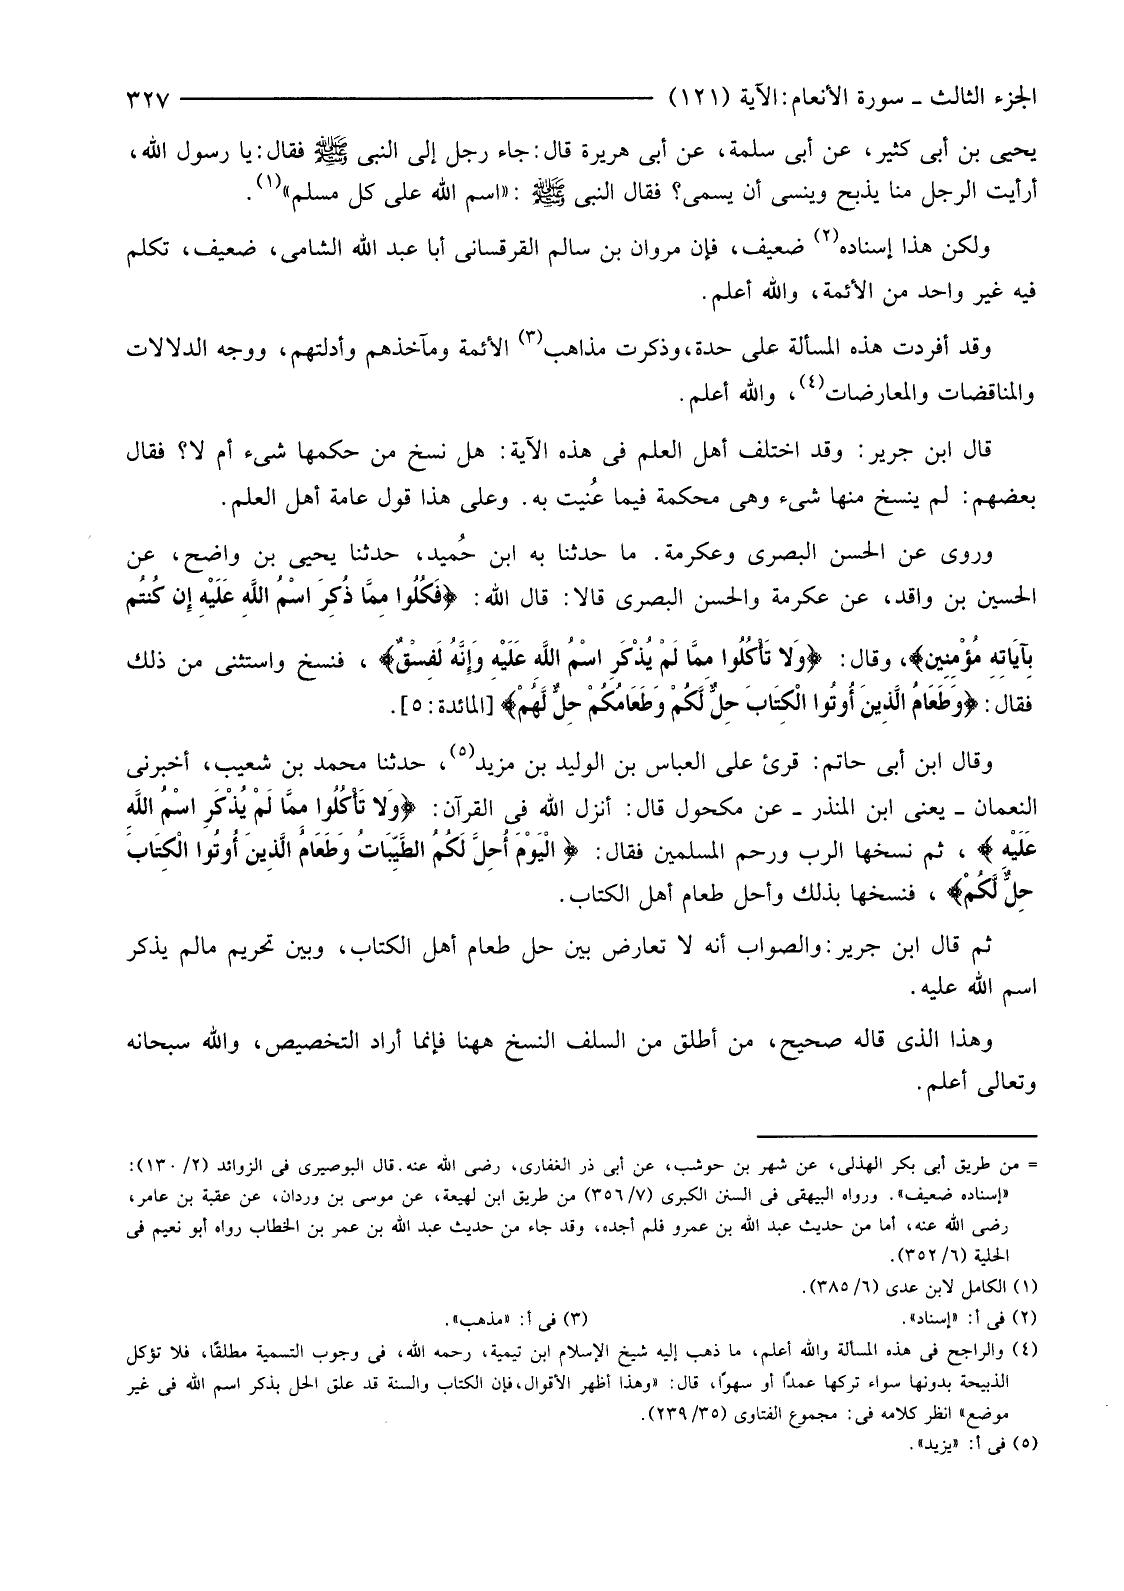 الجزء الثالث ـ سورة الأنعام: الآية (١٢١) ٣٢٧
يحيى بن أبى كثير، عن أبى سلمة، عن أبى هريرة قال: جاء رجل إلى النبى ﷺ فقال: يا رسول الله،
أرأيت الرجل منا يذبح وينسى أن يسمى؟ فقال النبى ﷺ : «اسم الله على كل مسلم»(١).
ولكن هذا إسناده(٢) ضعيف، فإن مروان بن سالم القرقسانى أبا عبد الله الشامى، ضعيف، تكلم
فيه غير واحد من الأئمة، والله أعلم.
وقد أفردت هذه المسألة على حدة، وذكرت مذاهب(٣) الأئمة ومآخذهم وأدلتهم، ووجه الدلالات
والمناقضات والمعارضات(٤)، والله أعلم.
قال ابن جرير: وقد اختلف أهل العلم فى هذه الآية: هل نسخ من حكمها شىء أم لا؟ فقال
بعضهم: لم ينسخ منها شىء وهى محكمة فيما عُنيت به. وعلى هذا قول عامة أهل العلم.
وروى عن الحسن البصرى وعكرمة. ما حدثنا به ابن حُميد، حدثنا يحيى بن واضح، عن
الحسين بن واقد، عن عكرمة والحسن البصرى قالا: قال الله: ﴿فَكُلُوا مِمَّا ذُكِرَ اسْمُ اللَّهِ عَلَيْهِ إِن كُنتُم
بِآيَاتِهِ مُؤْمِنِين﴾، وقال: ﴿وَلا تَأْكُلُوا مِمَّا لَمْ يُذْكَرِ اسْمُ اللَّهِ عَلَيْهِ وَإِنَّهُ لَفِسْقٌ﴾ ، فنسخ واستثنى من ذلك
فقال: ﴿وَطَعَامُ الَّذِينَ أُوتُوا الْكِتَابَ حِلٌّ لَّكُمْ وَطَعَامُكُمْ حِلٌّ لَّهُمْ﴾ [المائدة: ٥].
وقال ابن أبى حاتم: قرئ على العباس بن الوليد بن مزيد(٥)، حدثنا محمد بن شعيب، أخبرنى
النعمان ـ يعنى ابن المنذر ـ عن مكحول قال: أنزل الله فى القرآن: ﴿وَلا تَأْكُلُوا مِمَّا لَمْ يُذْكَرِ اسْمُ اللَّهِ
عَلَيْهِ ﴾ ، ثم نسخها الرب ورحم المسلمين فقال: ﴿ الْيَوْمَ أُحِلَّ لَكُمُ الطَّيِّبَاتُ وَطَعَامُ الَّذِينَ أُوتُوا الْكِتَابَ
حِلٌّ لَّكُمْ﴾ ، فنسخها بذلك وأحل طعام أهل الكتاب.
ثم قال ابن جرير: والصواب أنه لا تعارض بين حل طعام أهل الكتاب، وبين تحريم مالم يذكر
اسم الله عليه.
وهذا الذى قاله صحيح، من أطلق من السلف النسخ ههنا فإنما أراد التخصيص، والله سبحانه
وتعالى أعلم.
= من طريق أبى بكر الهذلى، عن شهر بن حوشب، عن أبى ذر الغفارى، رضى الله عنه. قال البوصيرى فى الزوائد (٢/ ١٣٠):
«إسناده ضعيف». ورواه البيهقى فى السنن الكبرى (٧/ ٣٥٦) من طريق ابن لهيعة، عن موسى بن وردان، عن عقبة بن عامر،
رضى الله عنه، أما من حديث عبد الله بن عمرو فلم أجده، وقد جاء من حديث عبد الله بن عمر بن الخطاب رواه أبو نعيم فى
الحلية (٦/ ٣٥٢).
(١) الكامل لابن عدى (٦/ ٣٨٥).
(٢) فى أ: «إسناد». (٣) فى أ: «مذهب».
(٤) والراجح فى هذه المسألة والله أعلم، ما ذهب إليه شيخ الإسلام ابن تيمية، رحمه الله، فى وجوب التسمية مطلقًا، فلا تؤكل
الذبيحة بدونها سواء تركها عمدًا أو سهوًا، قال: «وهذا أظهر الأقوال، فإن الكتاب والسنة قد علق الحل بذكر اسم الله فى غير
موضع» انظر كلامه فى: مجموع الفتاوى (٣٥/ ٢٣٩).
(٥) فى أ: «يزيد».